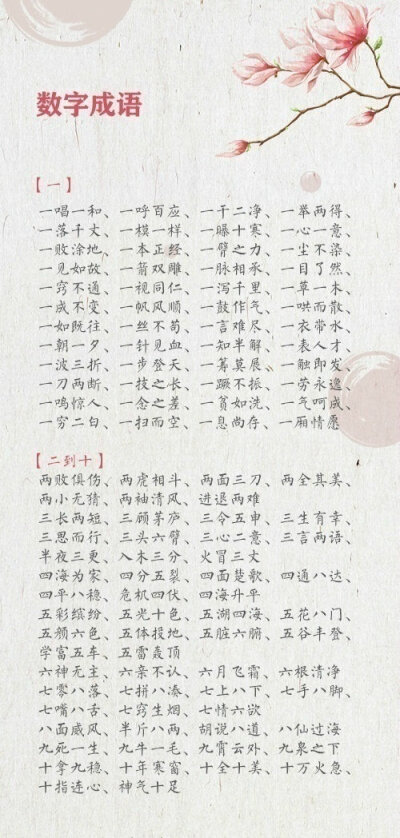 数字成语
【一】
一唱一和、一呼百应、一干二净、一举两得、
一落千丈、一模一样、一曝十寒、一心一意、
一败涂地、一本正经、一臂之力、一尘不染、
一见如故、一箭双雕、一脉相承、一目了然、
一窍不通、一视同仁、一泻千里、一草一木、
一成不变、一帆风顺、一鼓作气、一哄而散、
一如既往、一丝不苟、一言难尽、一衣带水、
一朝一夕、一针见血、一知半解、一表人才、
一波三折、一步登天、一筹莫展、一触即发、
一刀两断、一技之长、一蹶不振、一劳永逸、
一鸣惊人、一念之差、一贫如洗、一气呵成、
一穷二白、一扫而空、一息尚存、一厢情愿
【二到十】
两败俱伤、两虎相斗、两面三刀、两全其美、
两小无猜、两袖清风、进退两难
三长两短、三顾茅庐、三令五申、三生有幸、
三思而行、三头六臂、三心二意、三言两语、
半夜三更、入木三分、火冒三丈
四海为家、四分五裂、四面楚歌、四通八达、
四平八稳、危机四伏、四海升平
五彩缤纷、五光十色、五湖四海、五花八门、
五颜六色、五体投地、五脏六腑、五谷丰登、
学富五车、五雷轰顶
六神无主、六亲不认、六月飞霜、六根清净
七零八落、七拼八凑、七上八下、七手八脚
七嘴八舌、七窍生烟、七情六欲
八面威风、半斤八两、胡说八道、八仙过海
九死一生、九牛一毛、九霄云外、九泉之下
十拿九稳、十年寒窗、十全十美、十万火急、
十指连心、神气十足